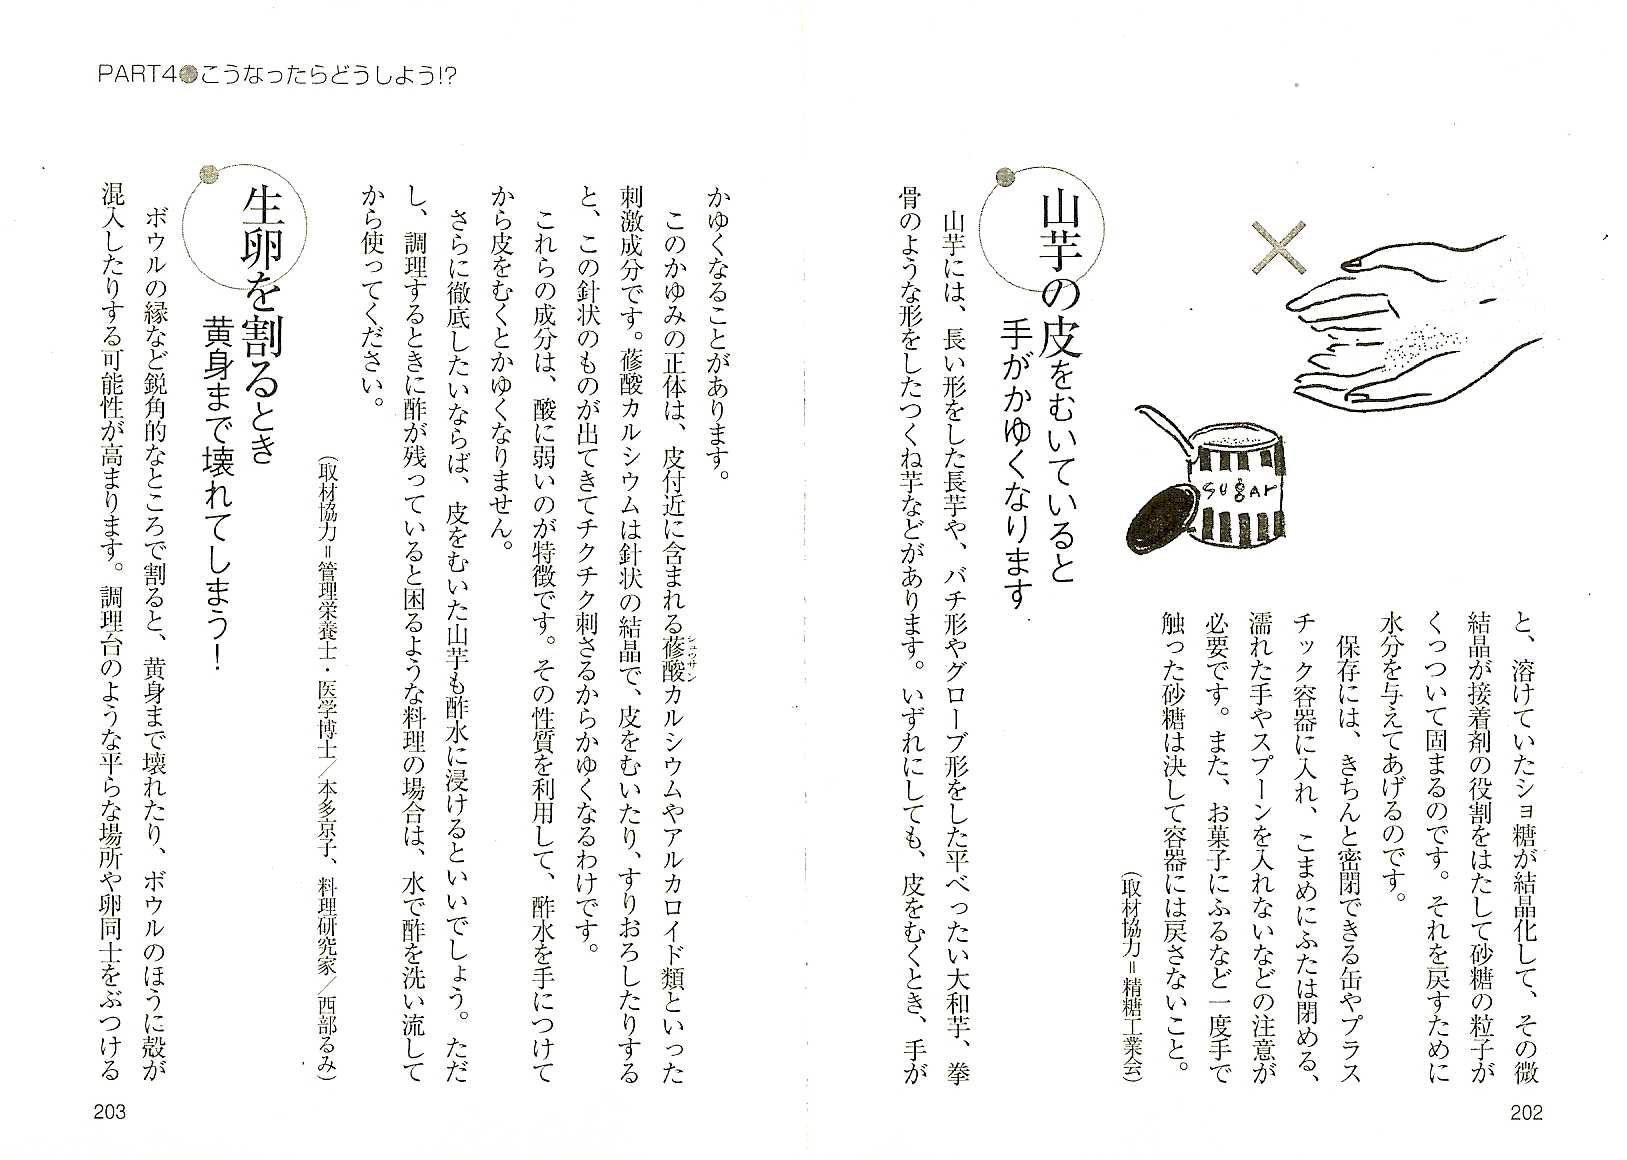 PART4●こうなったらどうしよう!?
と、溶けていたショ糖が結晶化して、その微
結晶が接着剤の役割をはたして砂糖の粒子が
くっついて固まるのです。それを戻すために
水分を与えてあげるのです。
保存には、きちんと密閉できる缶やプラス
チック容器に入れ、こまめにふたは閉める、
濡れた手やスプーンを入れないなどの注意が
必要です。また、お菓子にふるなど一度手で
触った砂糖は決して容器には戻さないこと。
(取材協力=精糖工業会)
sugar
山芋の皮をむいていると
手がかゆくなります
山芋には、長い形をした長芋や、バチ形やグローブ形をした平べったい大和芋、拳
骨のような形をしたつくね芋などがあります。いずれにしても、皮をむくとき、手が
202
かゆくなることがあります。
このかゆみの正体は、皮付近に含まれる蓚酸カルシウムやアルカロイド類といった
シュウサン
刺激成分です。蓚酸カルシウムは針状の結晶で、皮をむいたり、すりおろしたりする
と、この針状のものが出てきてチクチク刺さるからかゆくなるわけです。
これらの成分は、酸に弱いのが特徴です。その性質を利用して、酢水を手につけて
から皮をむくとかゆくなりません。
さらに徹底したいならば、皮をむいた山芋も酢水に浸けるといいでしょう。ただ
し、調理するときに酢が残っていると困るような料理の場合は、水で酢を洗い流して
から使ってください。
(取材協力=管理栄養士・医学博士/本多京子、料理研究家/西部るみ)
生卵を割るとき
黄身まで壊れてしまう!
ボウルの縁など鋭角的なところで割ると、黄身まで壊れたり、ボウルのほうに殻が
混入したりする可能性が高まります。調理台のような平らな場所や卵同士をぶつける
203